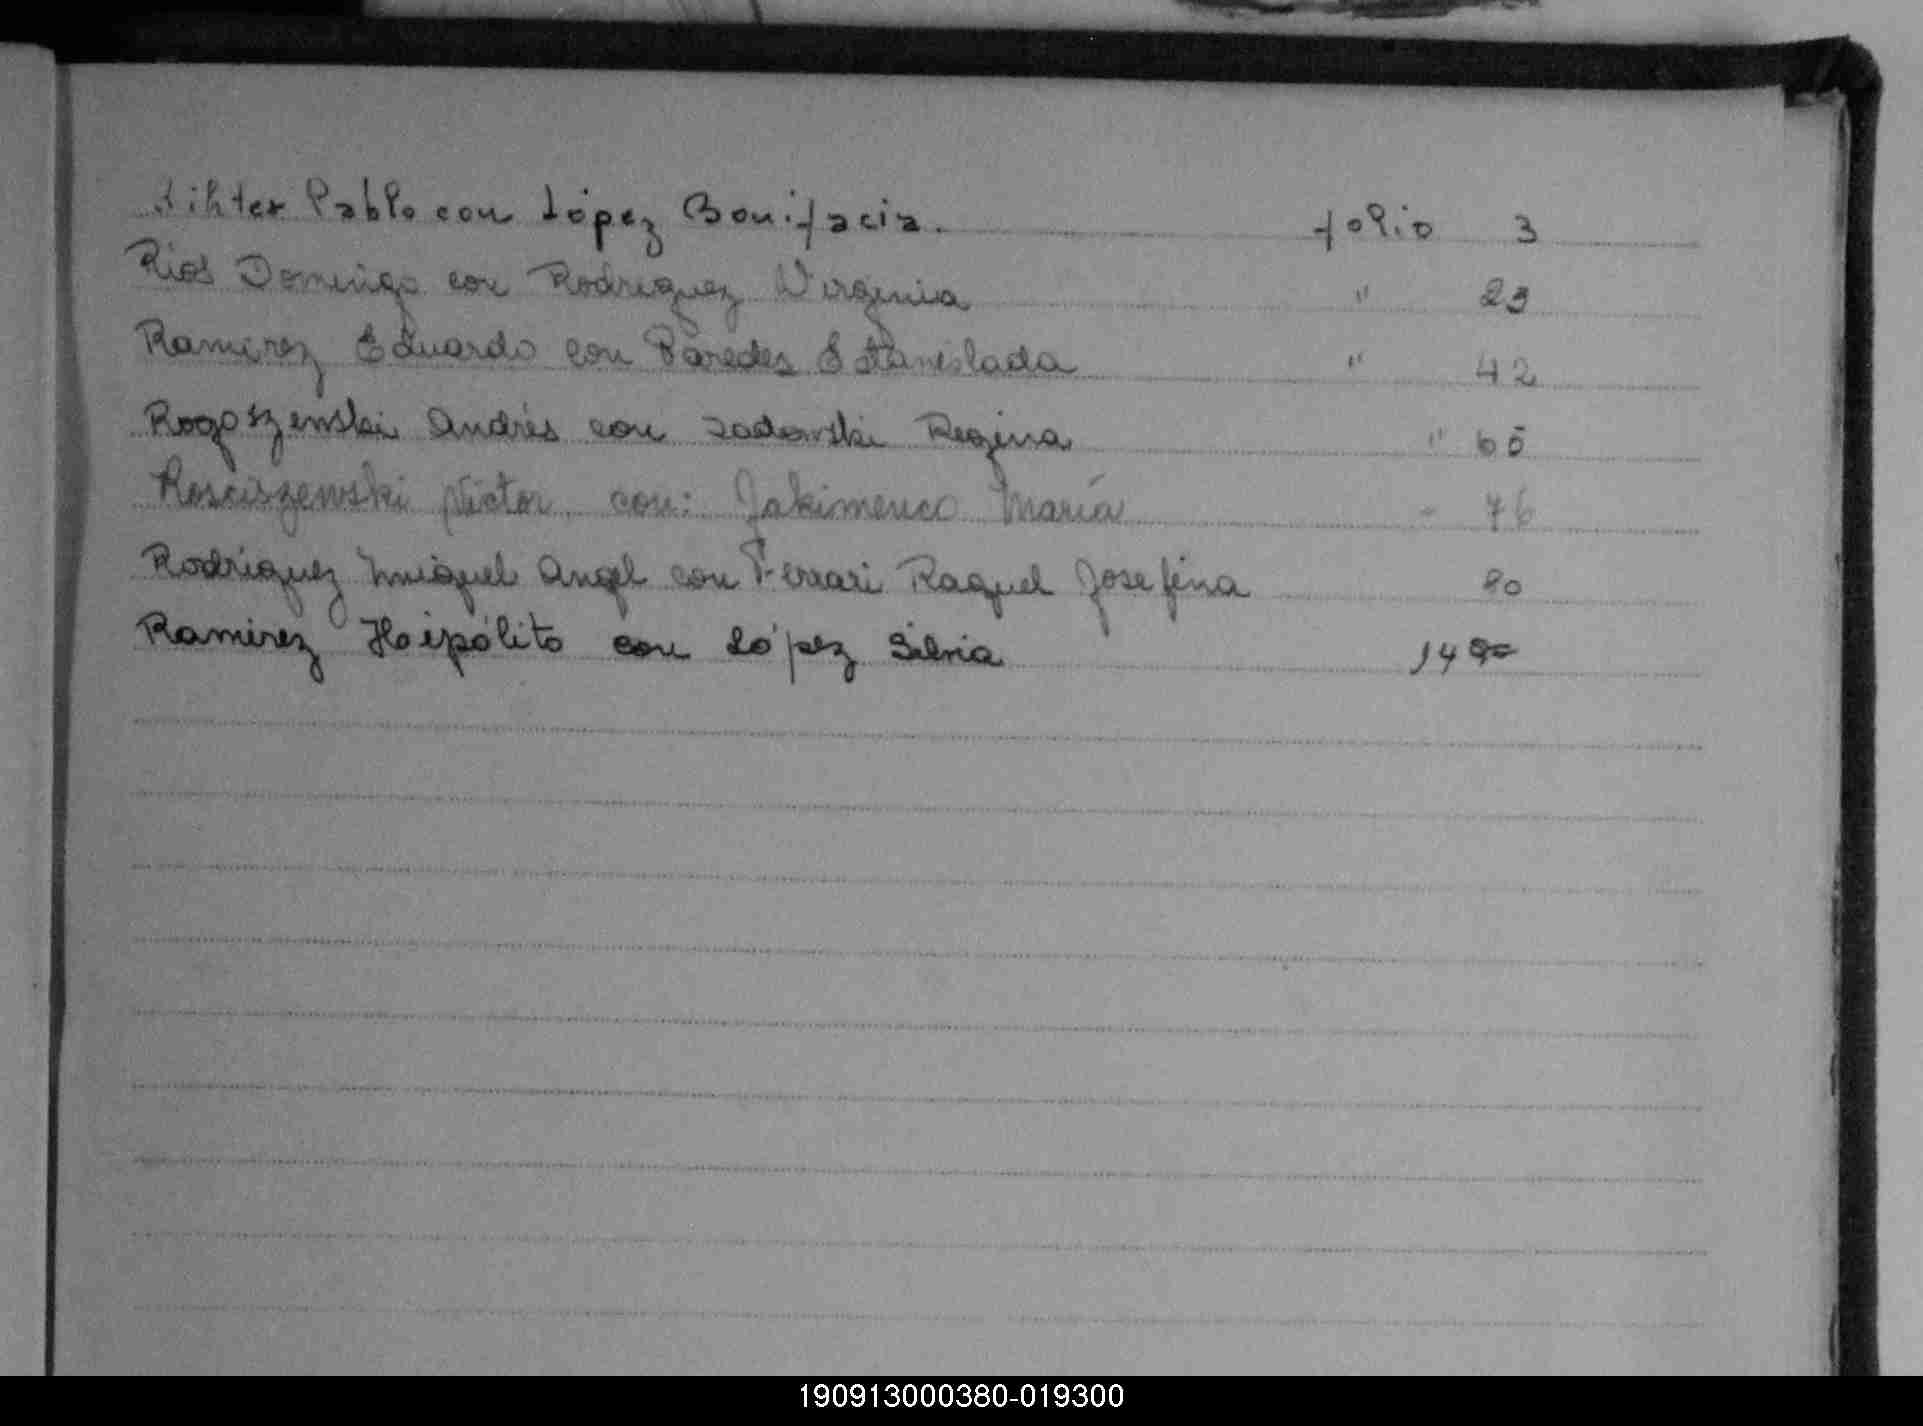 Rihter Pablo con López Bonifacia. folio 3
Rios Domingo con Rodriguez Virginia " 23
Ramirez Eduardo con Paredes Estanislada " 42
Rogoszenski Andrés con Zadowski Regina " 60
Rosciszewski Victor con: Jakimenco María - 76
Rodriguez Miguel Angel con Ferrari Raquel Josefina 80
Ramirez Hoipólito con López Silvia 14
190913000380-019300